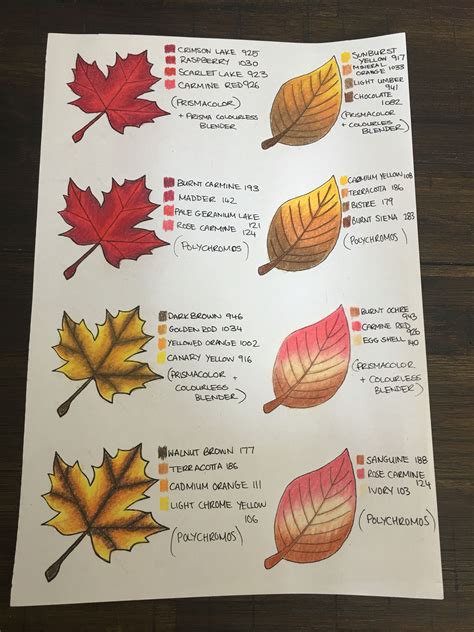 CRIMSON LAKE 925
RASPBERRY 1030
SCARLET LAKE 923
CARMINE RED 926
(PRISMACOLOR)
+ PRISMA COLOURLESS
BLENDER
SUNBURST
YELLOW 917
MINERAL
ORANGE 1033
LIGHT UMBER
941
CHOCOLATE
1082
(PRISMACOLOR
+ COLOURLESS
BLENDER)
BURNT CARMINE 193
MADDER 142
PALE GERANIUM LAKE
121
ROSE CARMINE
124
(POLYCHROMOS)
CADMIUM YELLOW 108
TERRACOTTA 186
BISTRE 179
BURNT SIENA 283
(POLYCHROMOS)
DARK BROWN 946
GOLDEN ROD 1034
YELLOWED ORANGE 1002
CANARY YELLOW 916
(PRISMACOLOR +
COLOURLESS
BLENDER)
BURNT OCHRE
943
CARMINE RED
926
EGG SHELL 140
(PRISMACOLOR
+ COLOURLESS
BLENDER)
WALNUT BROWN 177
TERRACOTTA 186
CADMIUM ORANGE 111
LIGHT CHROME YELLOW
106
(POLYCHROMOS)
SANGUINE 188
ROSE CARMINE
124
IVORY 103
(POLYCHROMOS)